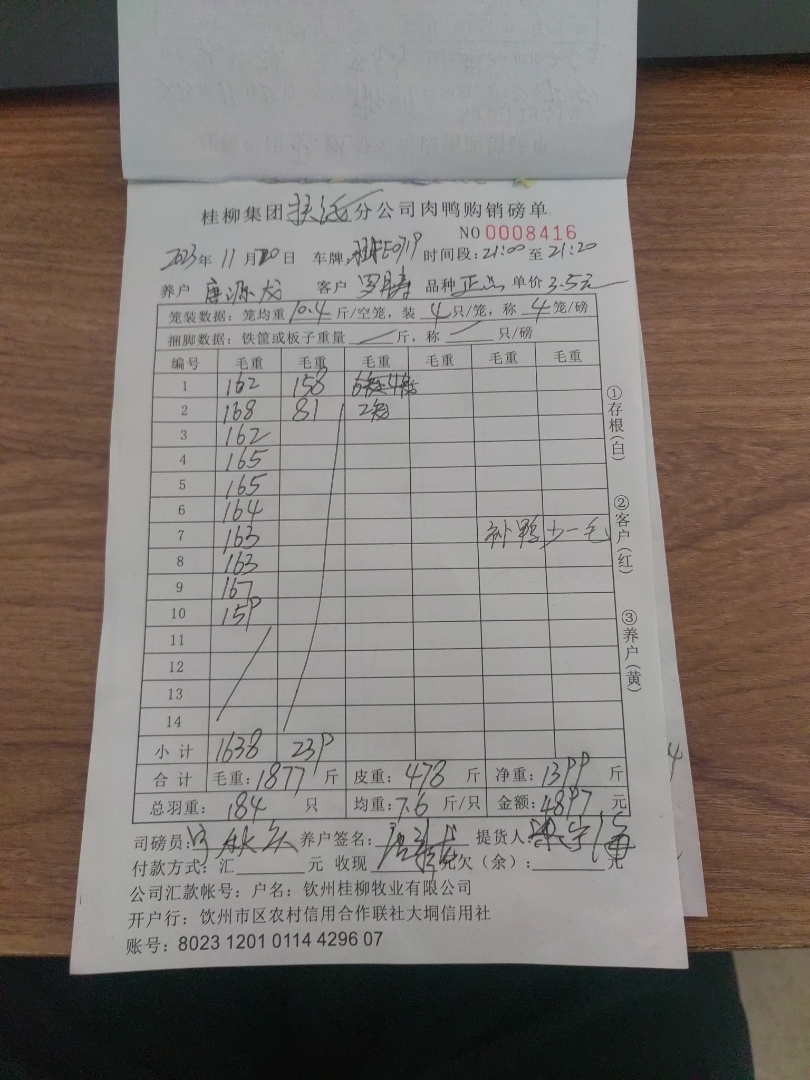 桂柳集团 分公司肉鸭购销磅单
NO 0008416
2023年 11月20日 车牌: 时间段:21:00 至 21:20
养户 唐源龙 客户 罗 品种 正品 单价 3.5元
笼装数据: 笼均重 10.4 斤/空笼, 装 4 只/笼, 称 4 笼/磅
捆脚数据: 铁筐或板子重量 斤, 称 只/磅
编号 毛重 毛重 毛重 毛重 毛重 毛重
1 162 158
2 168 81
3 162
4 165
5 165
6 164
7 163 补鸭少一毛
8 163
9 167
10 159
11
12
13
14
小计 1638 239
合计 毛重:1877 斤 皮重:478 斤 净重:1399 斤
总羽重: 184 只 均重:7.6 斤/只 金额:4897 元
司磅员: 养户签名: 提货人:
付款方式: 汇 元 收现 元欠(余): 元
公司汇款帐号: 户名: 钦州桂柳牧业有限公司
开户行: 钦州市区农村信用合作联社大垌信用社
账号: 8023 1201 0114 4296 07
①存根(白)
②客户(红)
③养户(黄)